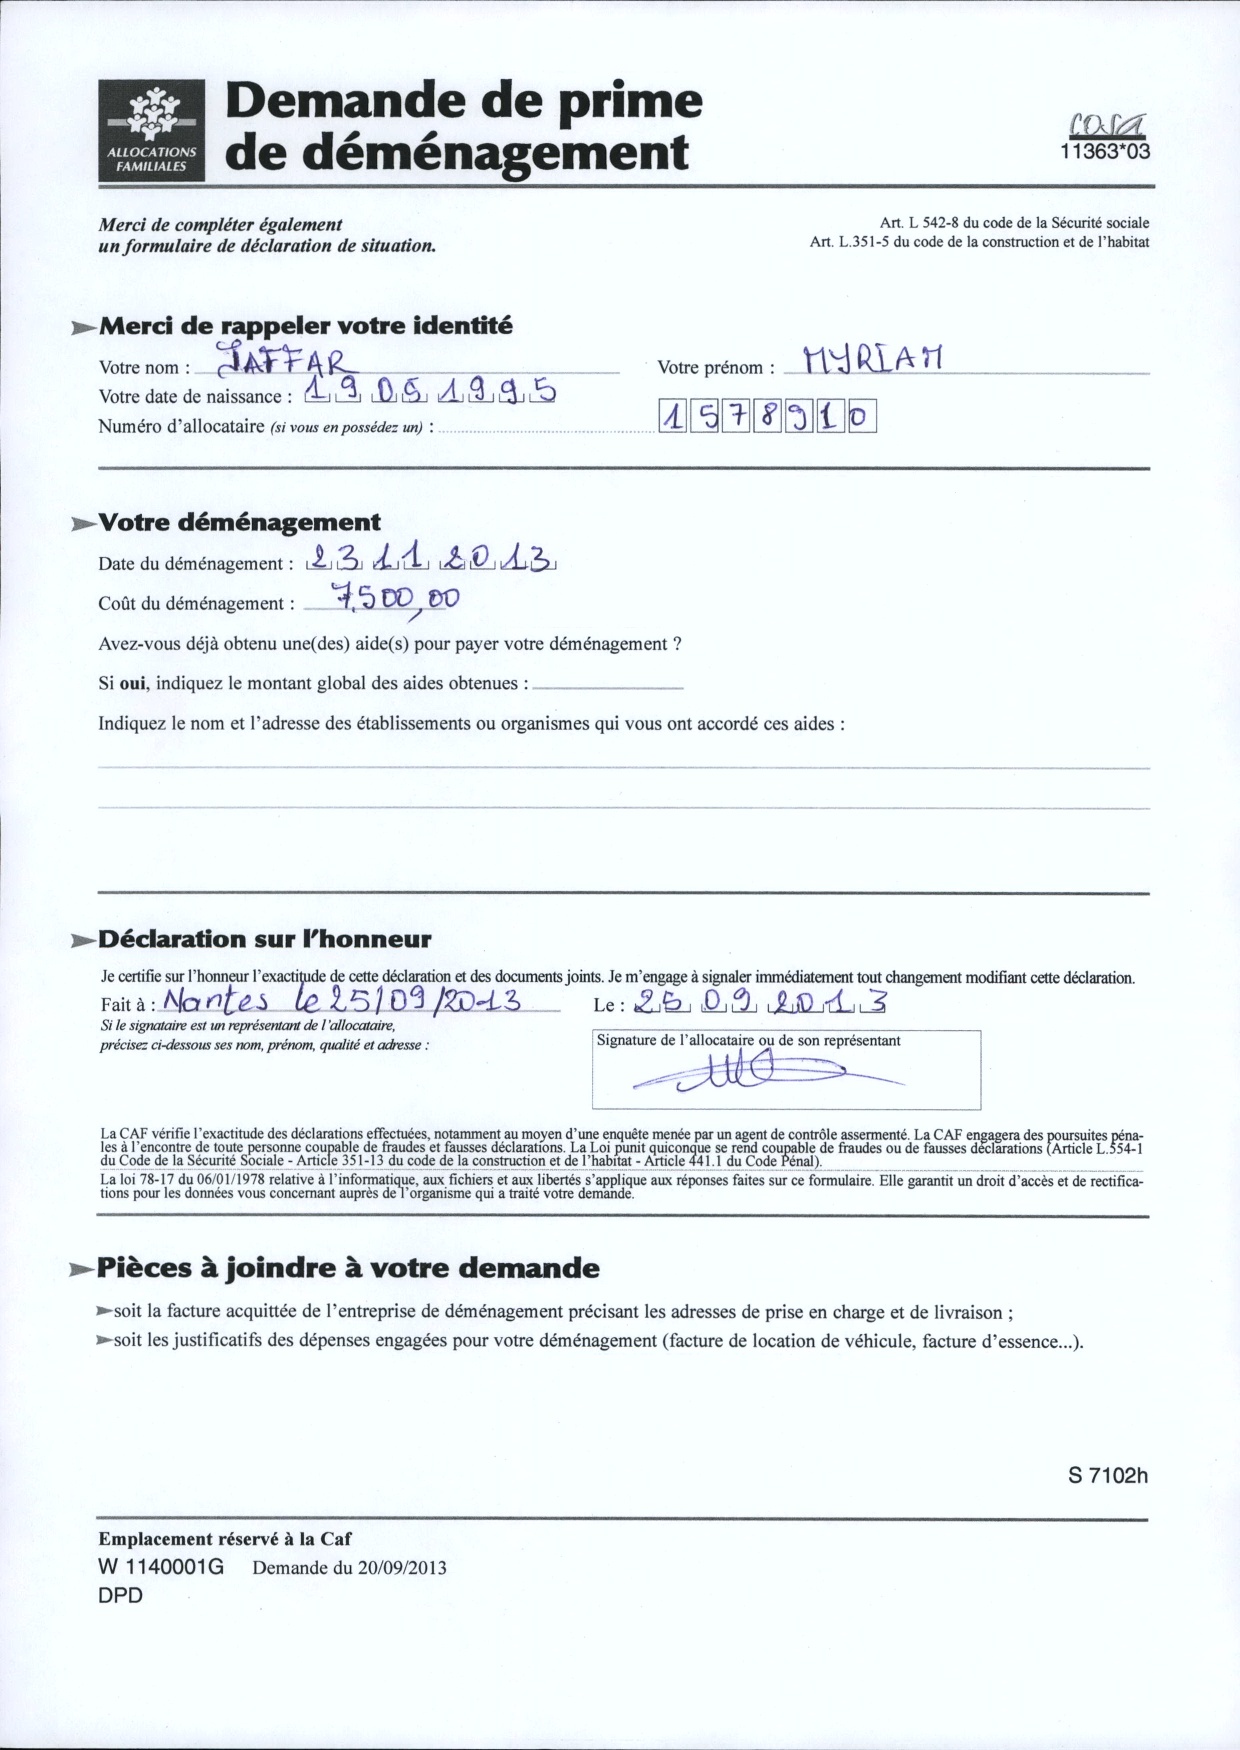 Demande de prime
de déménagement
ALLOCATIONS
FAMILIALES
cerfa
11363*03
Merci de compléter également
un formulaire de déclaration de situation.
Art. L 542-8 du code de la Sécurité sociale
Art. L.351-5 du code de la construction et de l'habitat
Merci de rappeler votre identité
Votre nom : JAFFAR Votre prénom : MYRIAM
Votre date de naissance : 19 05 1995
Numéro d'allocataire (si vous en possédez un) : 1578910
Votre déménagement
Date du déménagement : 23 11 2013
Coût du déménagement : 7.500,00
Avez-vous déjà obtenu une(des) aide(s) pour payer votre déménagement ?
Si oui, indiquez le montant global des aides obtenues :
Indiquez le nom et l'adresse des établissements ou organismes qui vous ont accordé ces aides :
Déclaration sur l'honneur
Je certifie sur l'honneur l'exactitude de cette déclaration et des documents joints. Je m'engage à signaler immédiatement tout changement modifiant cette déclaration.
Fait à : Nantes le 25/09/2013 Le : 25 09 2013
Si le signataire est un représentant de l'allocataire,
précisez ci-dessous ses nom, prénom, qualité et adresse :
Signature de l'allocataire ou de son représentant
La CAF vérifie l'exactitude des déclarations effectuées, notamment au moyen d'une enquête menée par un agent de contrôle assermenté. La CAF engagera des poursuites péna-
les à l'encontre de toute personne coupable de fraudes et fausses déclarations. La Loi punit quiconque se rend coupable de fraudes ou de fausses déclarations (Article L.554-1
du Code de la Sécurité Sociale - Article 351-13 du code de la construction et de l'habitat - Article 441.1 du Code Pénal).
La loi 78-17 du 06/01/1978 relative à l'informatique, aux fichiers et aux libertés s'applique aux réponses faites sur ce formulaire. Elle garantit un droit d'accès et de rectifica-
tions pour les données vous concernant auprès de l'organisme qui a traité votre demande.
Pièces à joindre à votre demande
soit la facture acquittée de l'entreprise de déménagement précisant les adresses de prise en charge et de livraison ;
soit les justificatifs des dépenses engagées pour votre déménagement (facture de location de véhicule, facture d'essence...).
S 7102h
Emplacement réservé à la Caf
W 1140001G Demande du 20/09/2013
DPD